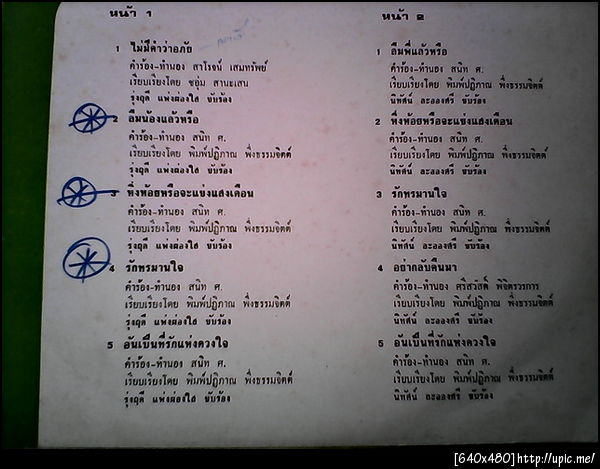 หน้า 1
1 ไม่มีคำว่าอภัย
คำร้อง-ทำนอง สาโรจน์ เสมทรัพย์
เรียบเรียงโดย ชอุ่ม สานะเสน
รุ่งฤดี แพ่งผ่องใส ขับร้อง
2 ลืมน้องแล้วหรือ
คำร้อง-ทำนอง สนิท ศ.
เรียบเรียงโดย พิมพ์ปฏิภาณ พึ่งธรรมจิตต์
รุ่งฤดี แพ่งผ่องใส ขับร้อง
3 หิ่งห้อยหรือจะแข่งแสงเดือน
คำร้อง-ทำนอง สนิท ศ.
เรียบเรียงโดย พิมพ์ปฏิภาณ พึ่งธรรมจิตต์
รุ่งฤดี แพ่งผ่องใส ขับร้อง
4 รักทรมานใจ
คำร้อง-ทำนอง สนิท ศ.
เรียบเรียงโดย พิมพ์ปฏิภาณ พึ่งธรรมจิตต์
รุ่งฤดี แพ่งผ่องใส ขับร้อง
5 อันเป็นที่รักแห่งดวงใจ
คำร้อง-ทำนอง สนิท ศ.
เรียบเรียงโดย พิมพ์ปฏิภาณ พึ่งธรรมจิตต์
รุ่งฤดี แพ่งผ่องใส ขับร้อง
หน้า 2
1 ลืมพี่แล้วหรือ
คำร้อง-ทำนอง สนิท ศ.
เรียบเรียงโดย พิมพ์ปฏิภาณ พึ่งธรรมจิตต์
นิทัศน์ ละอองศรี ขับร้อง
2 หิ่งห้อยหรือจะแข่งแสงเดือน
คำร้อง-ทำนอง สนิท ศ.
เรียบเรียงโดย พิมพ์ปฏิภาณ พึ่งธรรมจิตต์
นิทัศน์ ละอองศรี ขับร้อง
3 รักทรมานใจ
คำร้อง-ทำนอง สนิท ศ.
เรียบเรียงโดย พิมพ์ปฏิภาณ พึ่งธรรมจิตต์
นิทัศน์ ละอองศรี ขับร้อง
4 อย่ากลับคืนมา
คำร้อง-ทำนอง ศรีสวัสดิ์ พิจิตรวรการ
เรียบเรียงโดย พิมพ์ปฏิภาณ พึ่งธรรมจิตต์
นิทัศน์ ละอองศรี ขับร้อง
5 อันเป็นที่รักแห่งดวงใจ
คำร้อง-ทำนอง สนิท ศ.
เรียบเรียงโดย พิมพ์ปฏิภาณ พึ่งธรรมจิตต์
นิทัศน์ ละอองศรี ขับร้อง
[640x480]http://upic.me/